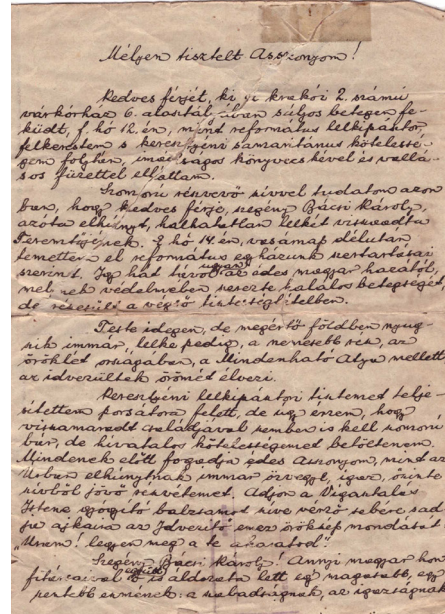 Mélyen tisztelt Asszonyom!
Kedves férjét, ki a krakói 2. számú
várkórház 6. alosztályában súlyos betegen fe-
küdt, f. hó 12.-én, mint református lelkipásztor,
felkerestem s keresztyéni samaritánus kötelessé-
gem folytán, imádságos könyvecskével és vallá-
sos füzettel elláttam.
Szomorú részvevő szívvel tudatom azon-
ban, hogy kedves férje, szegény Bácsi Károly,
azóta elhúnyt, halhatatlan lelkét visszaadta
Teremtőjének. F. hó 14.-én, vasárnap délután
temettem el református egyházunk szertartásai
szerint. Így hát távol ugyan az édes magyar hazától,
melynek védelmében szerezte halálos betegségét,
de részesült a végső tisztességtételben.
Teste idegen, de megértő földben nyug-
szik immár, lelke pedig, a nemesebb rész, az
öröklét országában, a Mindenható Atya mellett
az idvezültek örömét élvezi.
Keresztyéni lelkipásztori tisztemet telje-
sítettem porsátora felett, de úgy érzem, hogy
visszamaradt családjával szemben is kell szomorú
bár, de hivatalos kötelességemet betöltenem.
Mindenek előtt fogadja édes Asszonyom, mind az
Úrban elhúnytnak immár özvegye, igaz, őszinte
szívből jövő részvétemet. Adjon a Vigasztalás
Istene gyógyító balzsamot szíve vérző sebére s ad-
ja ajkaira az Idvezítő emez örökszép mondását
"Uram! legyen meg a te akaratod"
Szegény Bácsi Károly! Annyi magyar hon-
fitársaival együtt ő is áldozata lett egy magasabb, egy
szentebb eszmének: a szabadságnak, az igazságnak